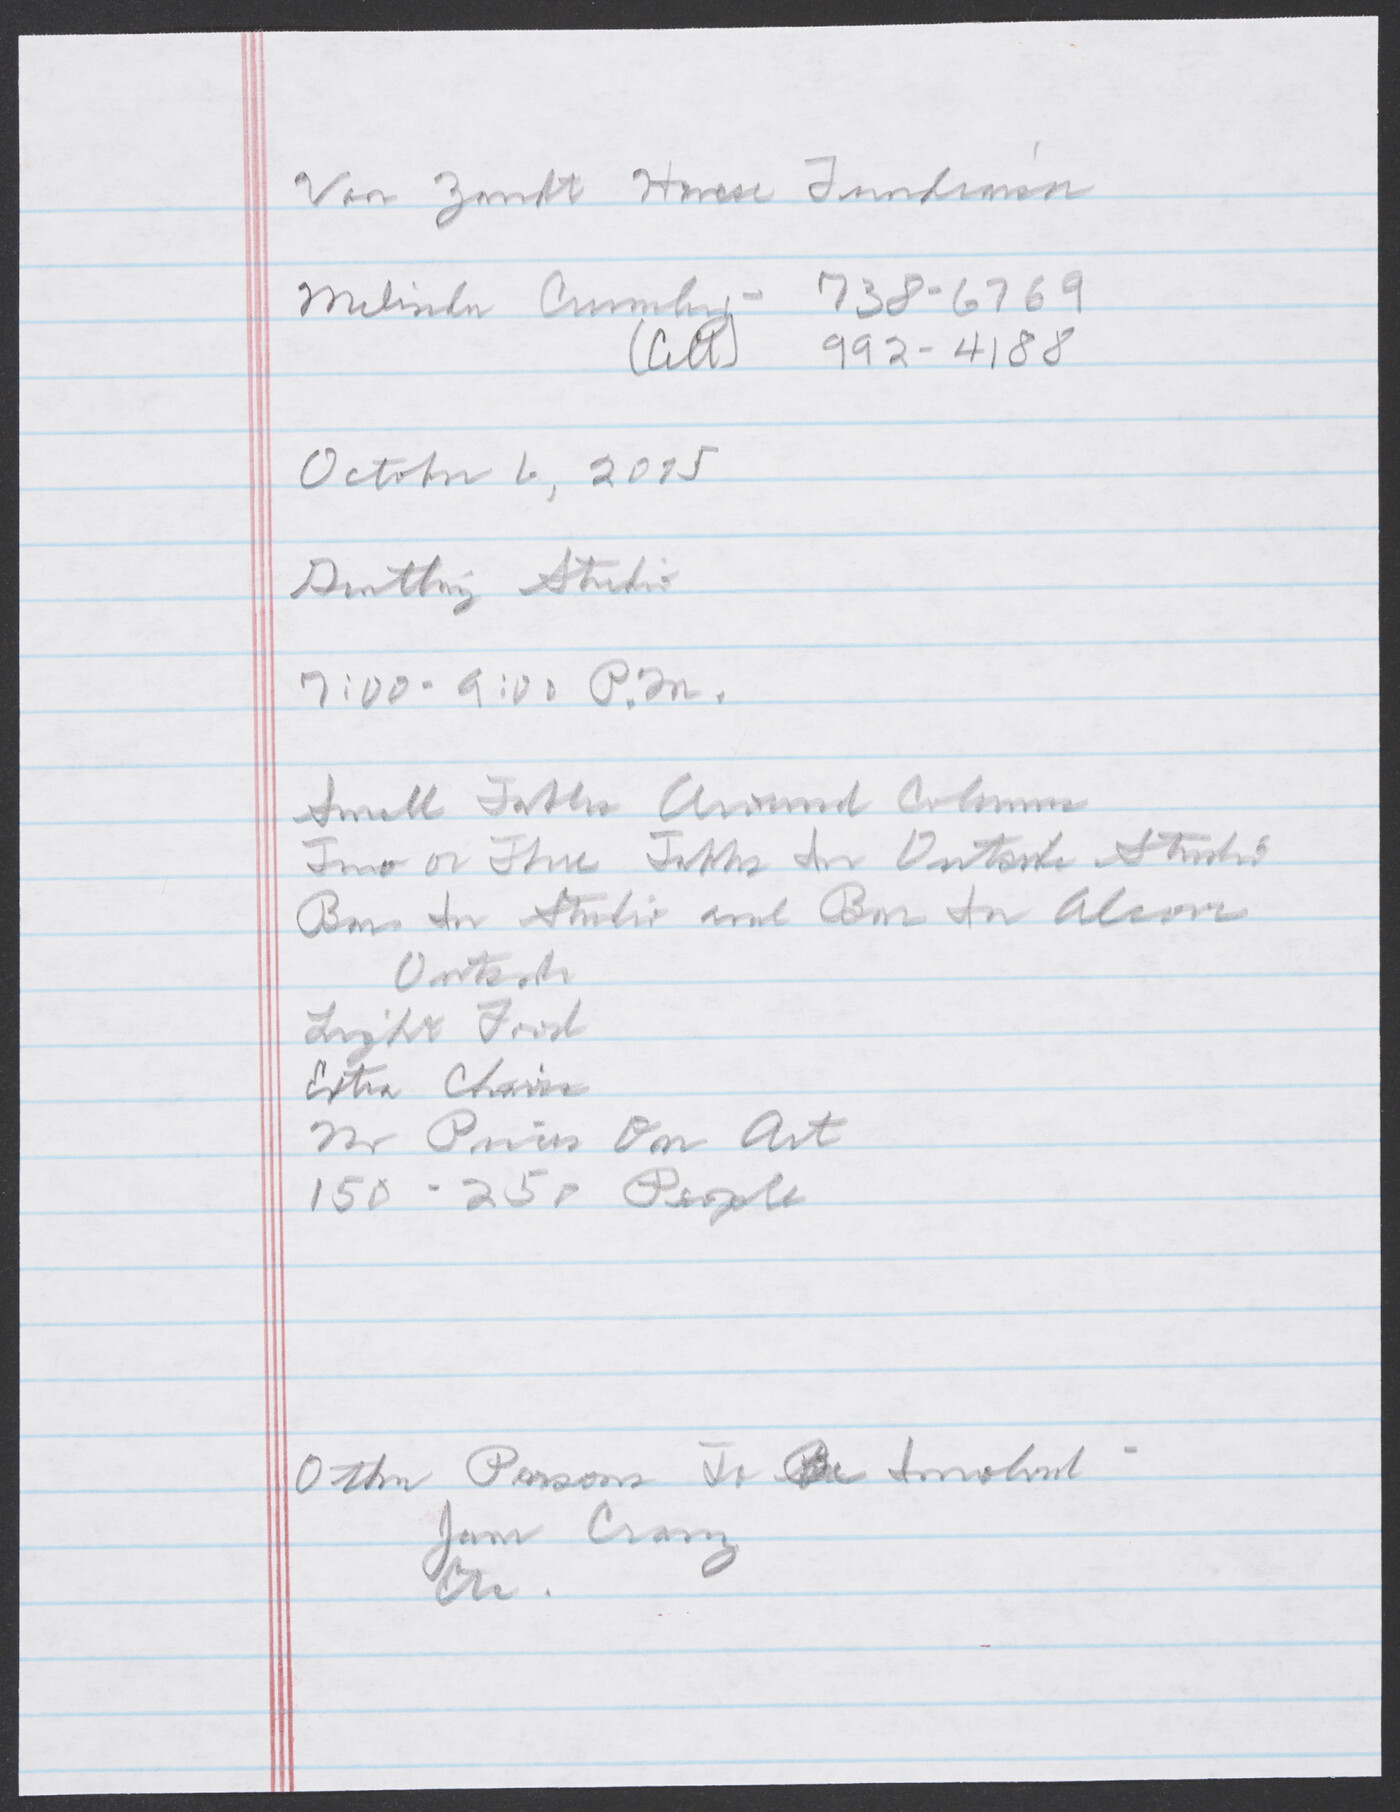 Van Zandt House Fundraiser
Melinda Crumley - 738-6769
(Cell) 992-4188
October 6, 2015
Studio
7:00-9:00 P.M.
Small Tables Around Columns
Two or Three Tables In Outside Studio
Bar In Studio and Bar In Alcove
Outside
Light Food
Extra Chairs
No Prices On Art
150 - 250 People
Other Persons To Be Involved -
Jam Crazy
Etc.